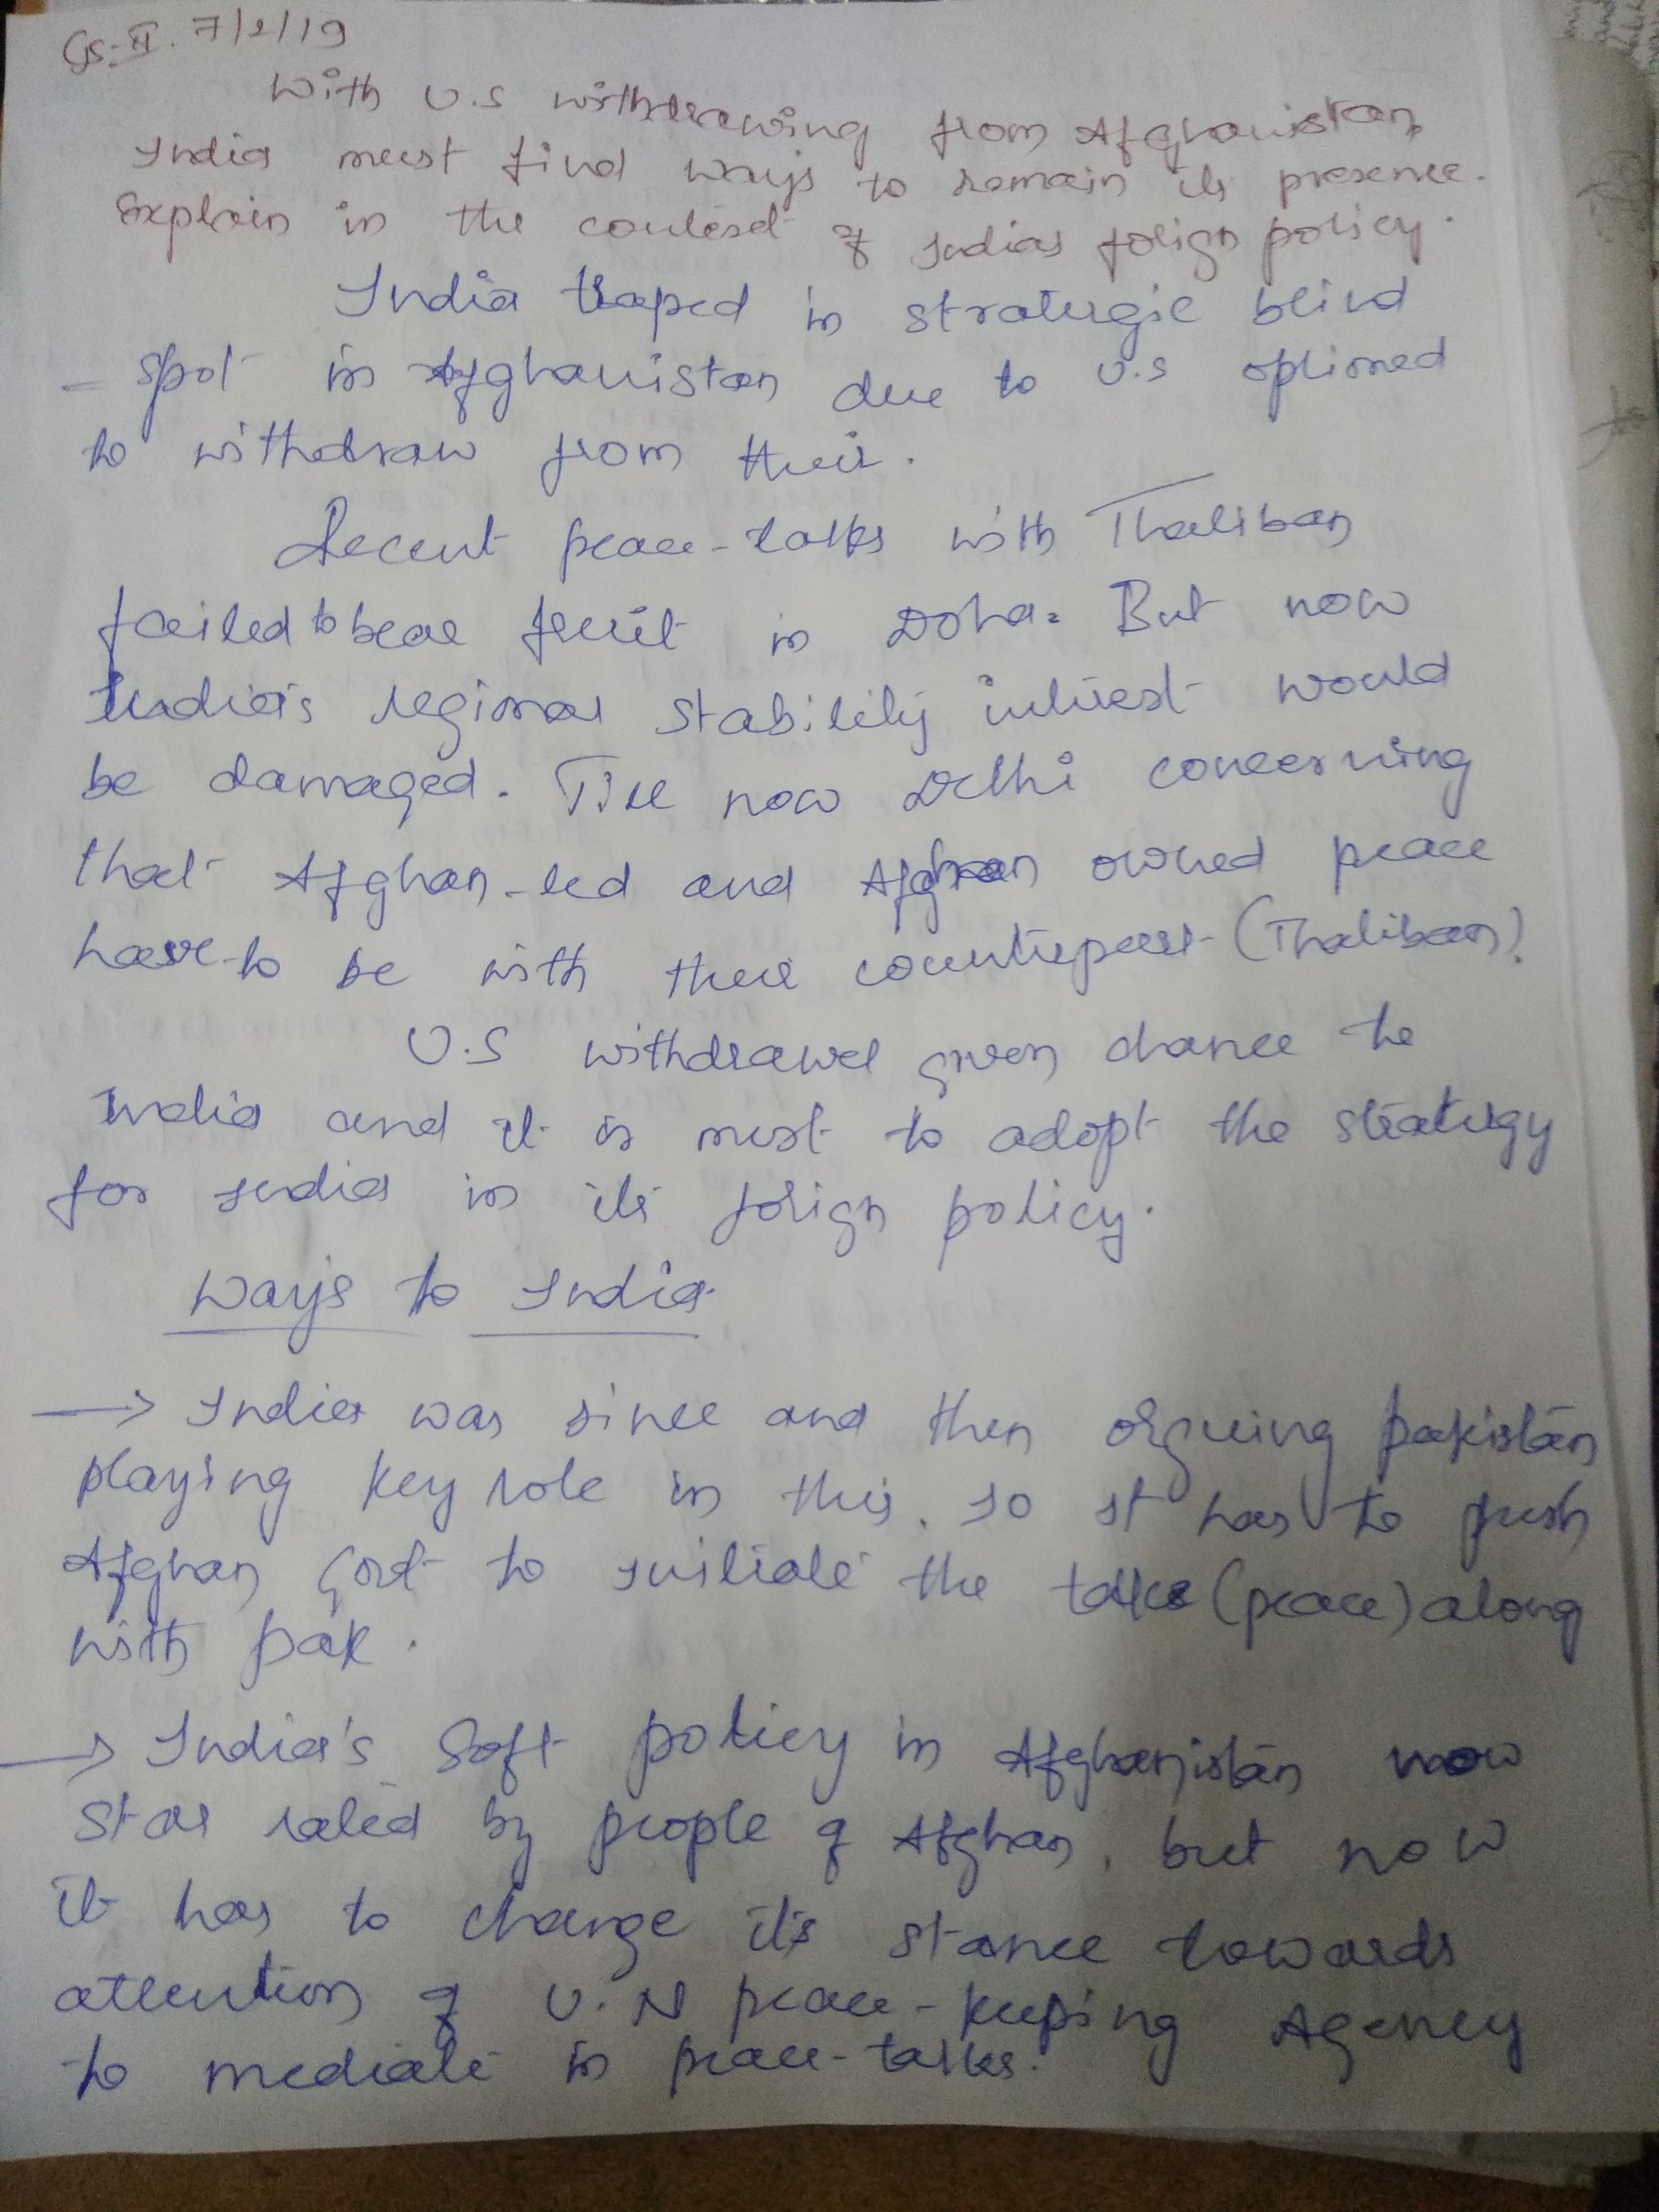 GS-II. 7/2/19
With U.S withdrawing from Afghanistan,
India must find ways to remain its presence.
Explain in the context of Indias forign policy.
India traped in strategic blind
- spot in Afghanistan due to U.S optioned
to withdraw from their.
Recent peace-talks with Thaliban
failed to bear fruit in Doha. But now
India's regional stability interest would
be damaged. Till now Delhi concerning
that Afghan-led and Afghan owned peace
have to be with there counterpart (Thaliban).
U.S withdrawel given chance to
India and it is must to adopt the strategy
for India in its forign policy.
Ways to India
→ India was since and then arguing Pakistan
playing key role in this. so it has to push
Afghan Govt to initiate the talks (peace) along
with Pak.
→ India's Soft policy in Afghanistan now
Star rated by people of Afghan, but now
it has to change its stance towards
attention of U.N peace-keeping Agency
to mediate in peace-talks.